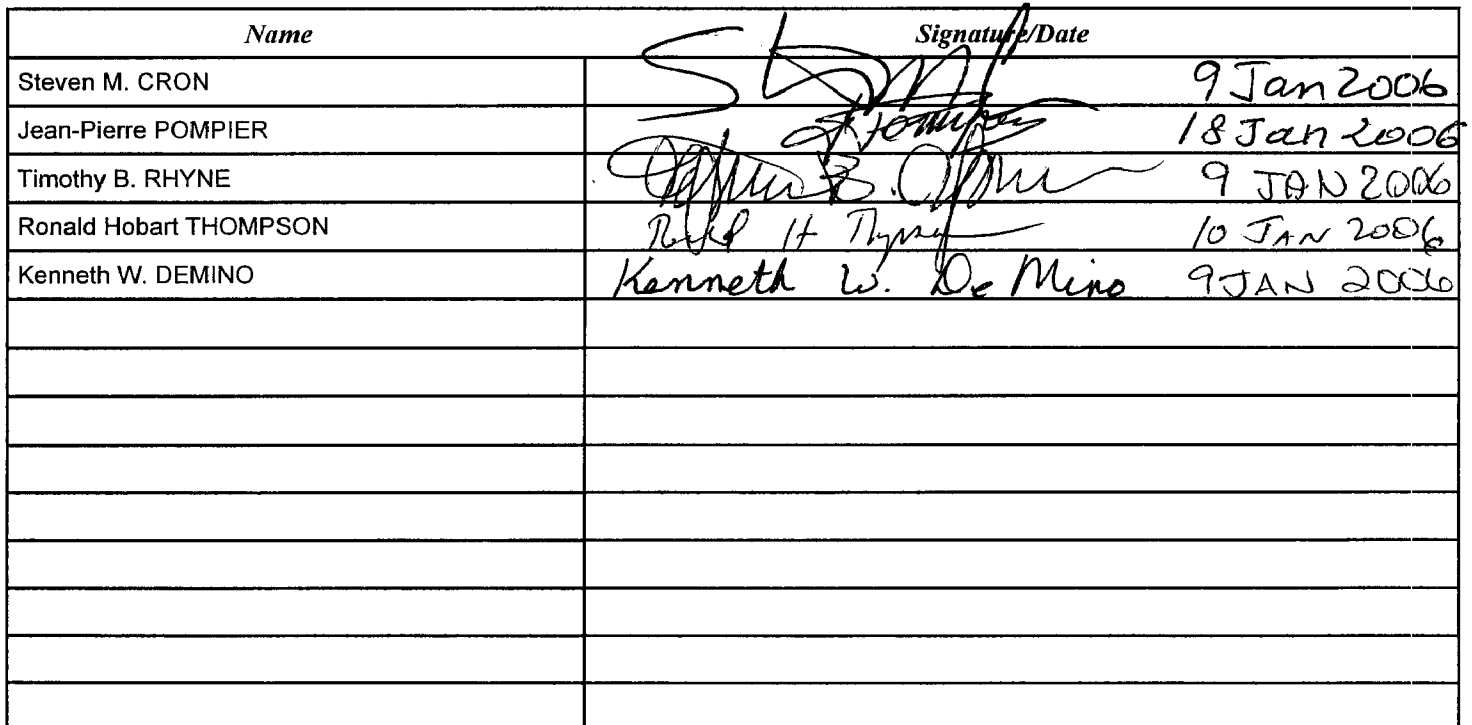 Name Signature/Date
Steven M. CRON 9 Jan 2006
Jean-Pierre POMPIER 18 Jan 2006
Timothy B. RHYNE 9 JAN 2006
Ronald Hobart THOMPSON 10 JAN 2006
Kenneth W. DEMINO Kenneth W. De Mino 9 JAN 2006